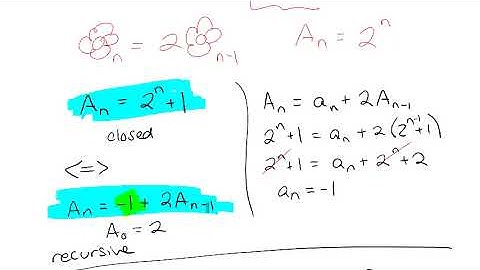 🌸ₙ = 2🌸ₙ₋₁
Aₙ = 2ⁿ
Aₙ = 2ⁿ + 1
closed
<=>
Aₙ = -1 + 2Aₙ₋₁
A₀ = 2
recursive
Aₙ = aₙ + 2Aₙ₋₁
2ⁿ + 1 = aₙ + 2(2ⁿ⁻¹ + 1)
2ⁿ + 1 = aₙ + 2ⁿ + 2
aₙ = -1